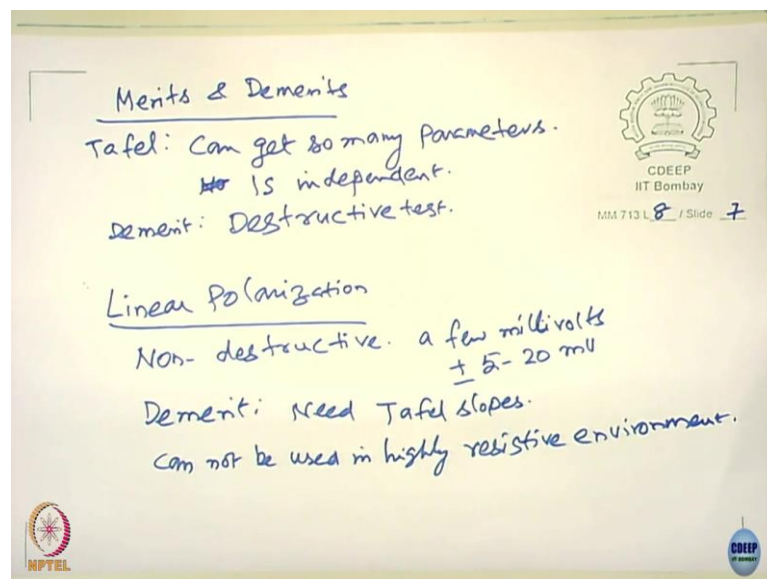 Merits & Demerits
Tafel: Can get so many Parameters.
Is independent.
Demerit: Destructive test.
CDEEP
IIT Bombay
MM 713 L 8 / Slide 7
Linear Polarization
Non-destructive. a few millivolts
± 5-20 mV
Demerit: Need Tafel slopes.
can not be used in highly resistive environment.
NPTEL
CDEEP
IIT BOMBAY